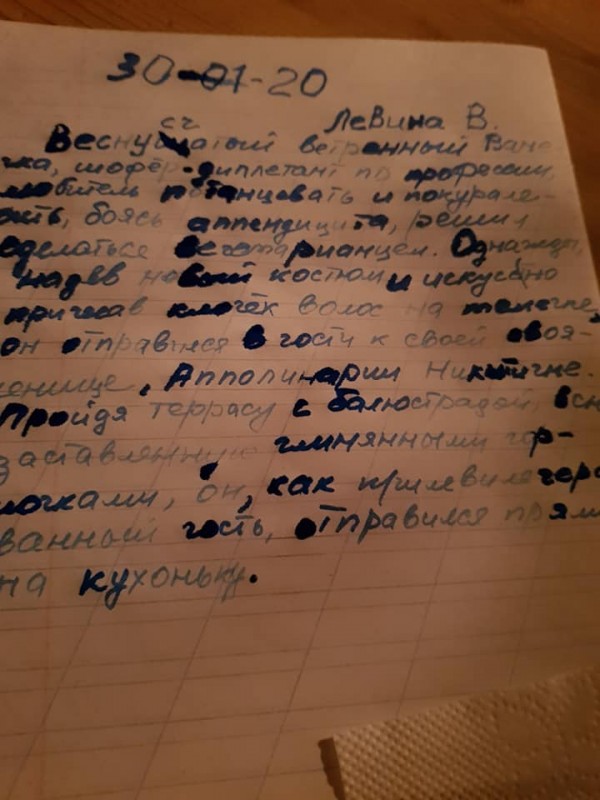 30-01-20
Левина В.
сч
Веснущатый ветренный Ване-
чка, шофёр-диплетант по профессии,
любитель потанцевать и покурале-
сить, боясь аппендицита, решил
сделаться вегетарианцем. Однажды,
надев новый костюм и искуссно
причесав клочёк волос на темечке,
он отправился в гости к своей своя-
ченице, Апполинарии Никитичне.
Пройдя террасу с балюстрадой, всю
заставленную глинянными гор-
шочками, он, как привилегеро
ванный гость, отправился прями
на кухоньку.